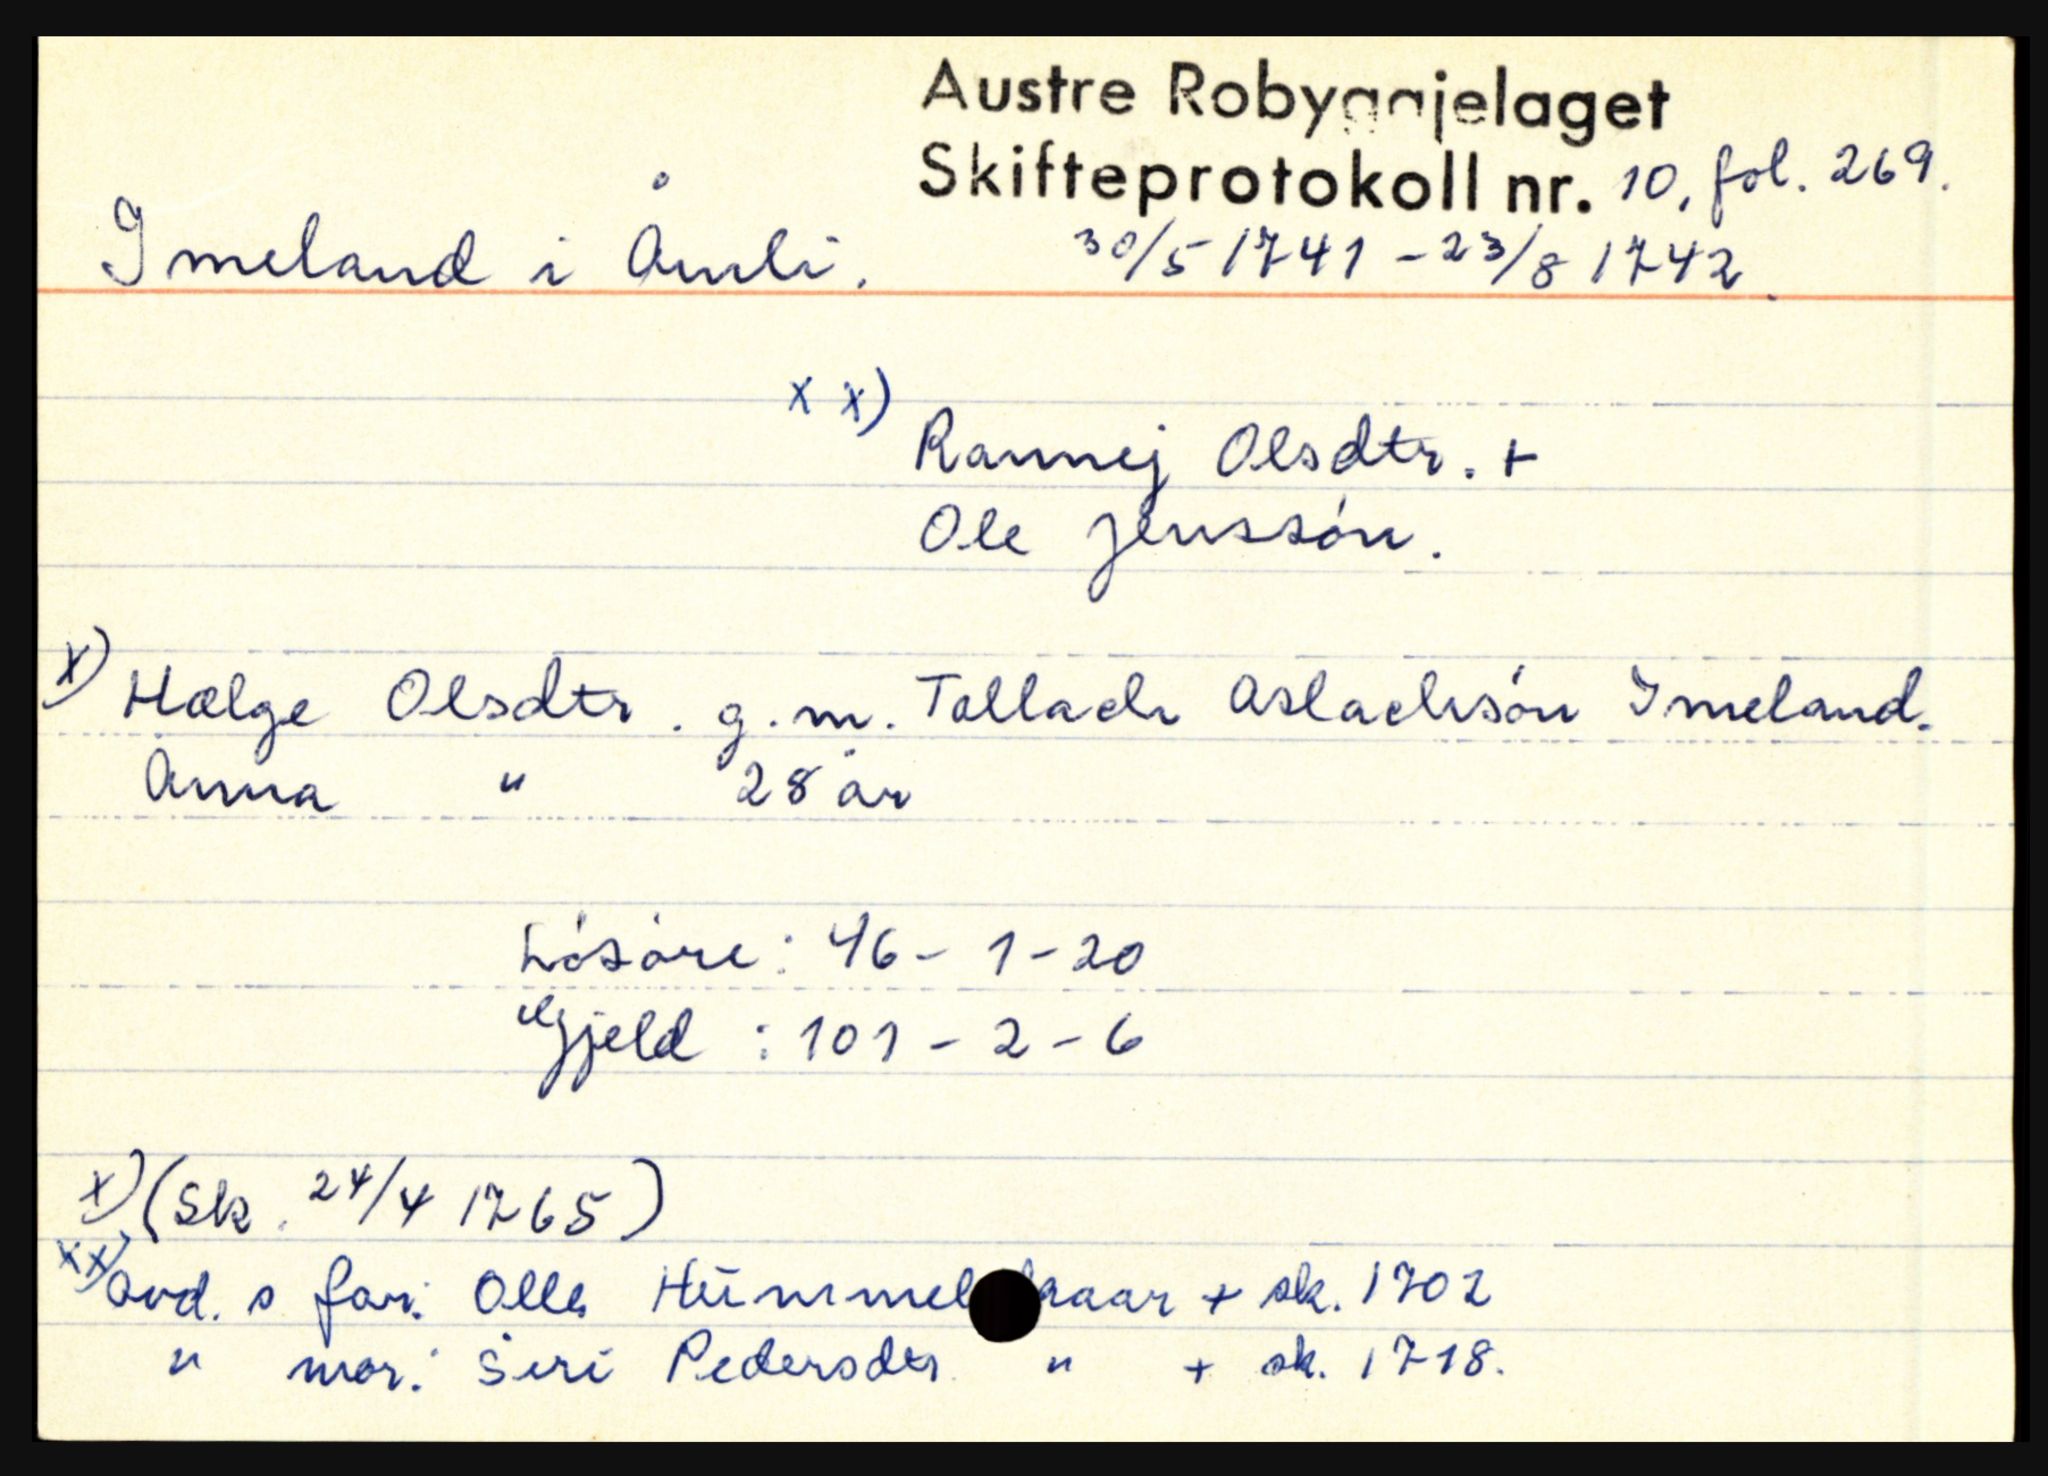 Austre Robyggjelaget
Skifteprotokoll nr. 10, fol. 269.
Imeland i Åmli. 30/5 1741 - 23/8 1742.
xx)
Rannej Olsdtr. +
Ole Jenssón.
x) Hælge Olsdtr. g.m. Tallack Aslacksón Imeland.
Anna " 28 år
Lósóre: 46 - 1 - 20
Gjeld : 101 - 2 - 6
x) (Sk. 24/4 1765)
xx) Avd. s far: Olle Hümmel kaar + sk. 1702
" mor: Siri Pedersdtr " + sk. 1718.